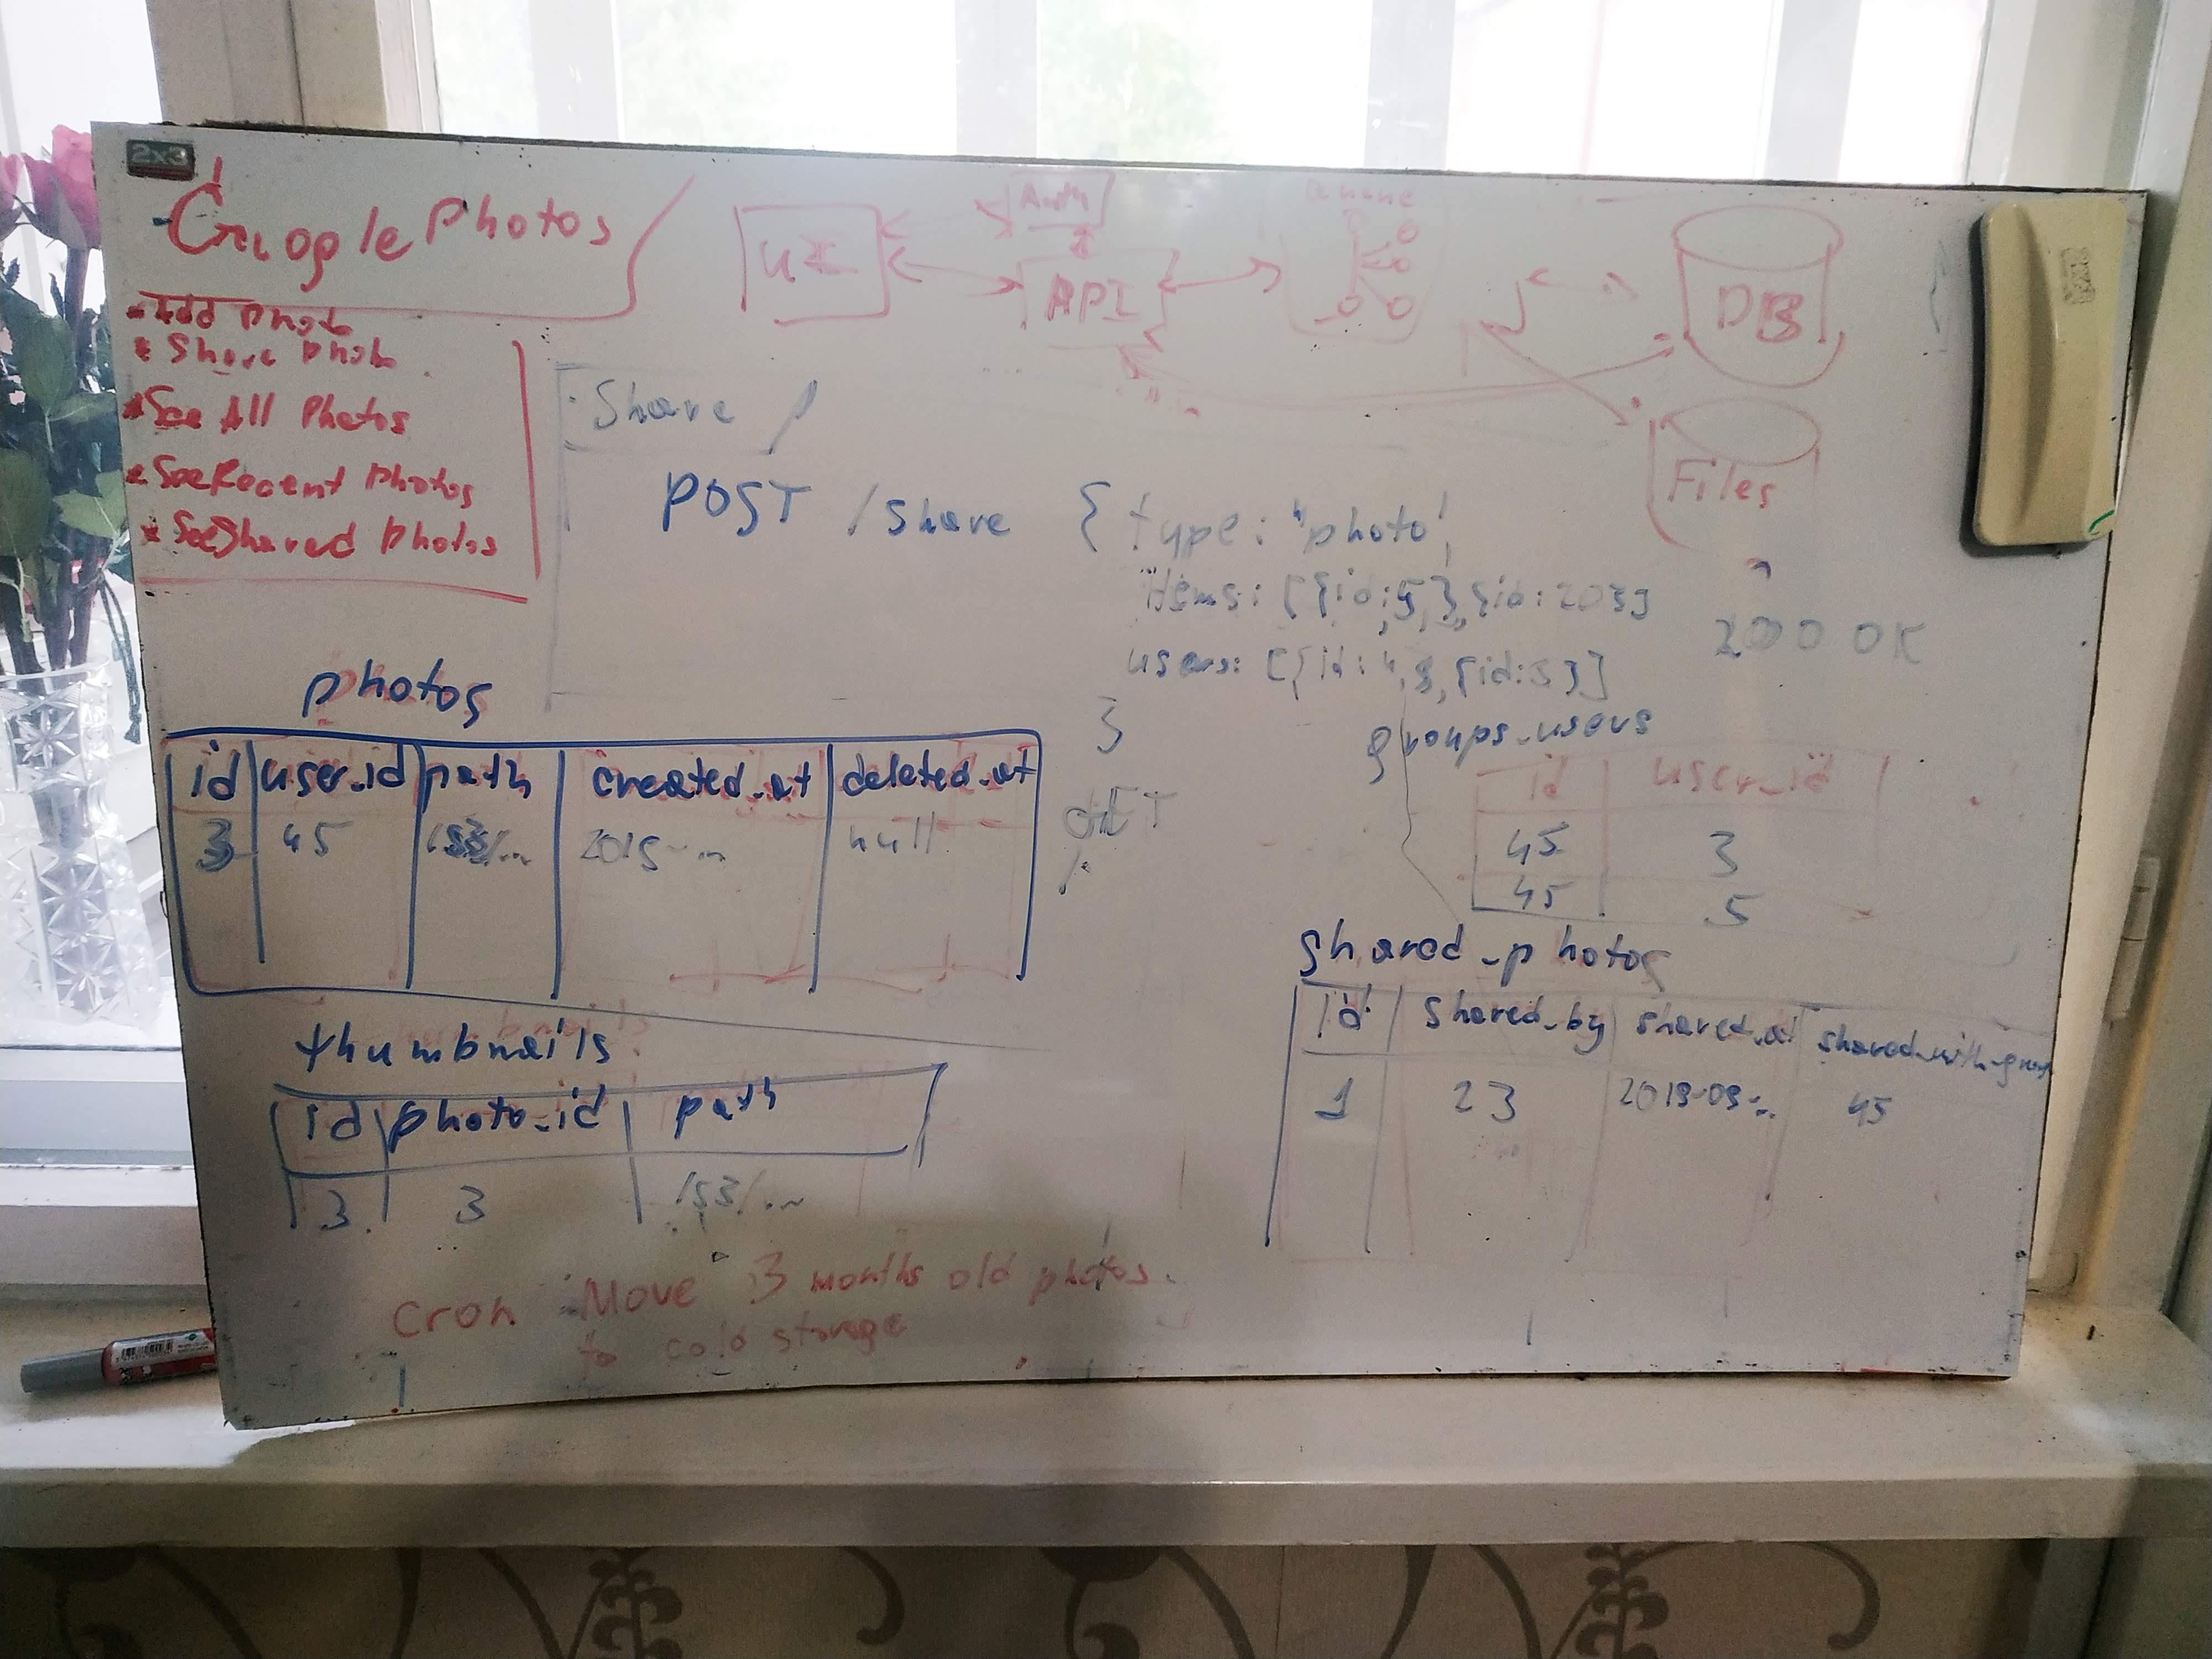 2x3
Google Photos
- Add Photo
* Share Photo
* See All Photos
* See Recent Photos
* See Shared Photos
UI
Auth
API
queue
DB
Files
Share
POST /share { type: "photo",
items: [{id:5},{id:203}
users: [{id:4},{id:5}]
}
200 OK
GET
/
photos
id user_id path created_at deleted_at
3 45 /s3/... 2015-... null
thumbnails
id photo_id path
3 3 /s3/...
groups_users
id user_id
45 3
45 5
shared_photos
id shared_by shared_at shared_with_group
1 23 2019-09-.. 45
Cron Move 3 months old photos
to cold storage